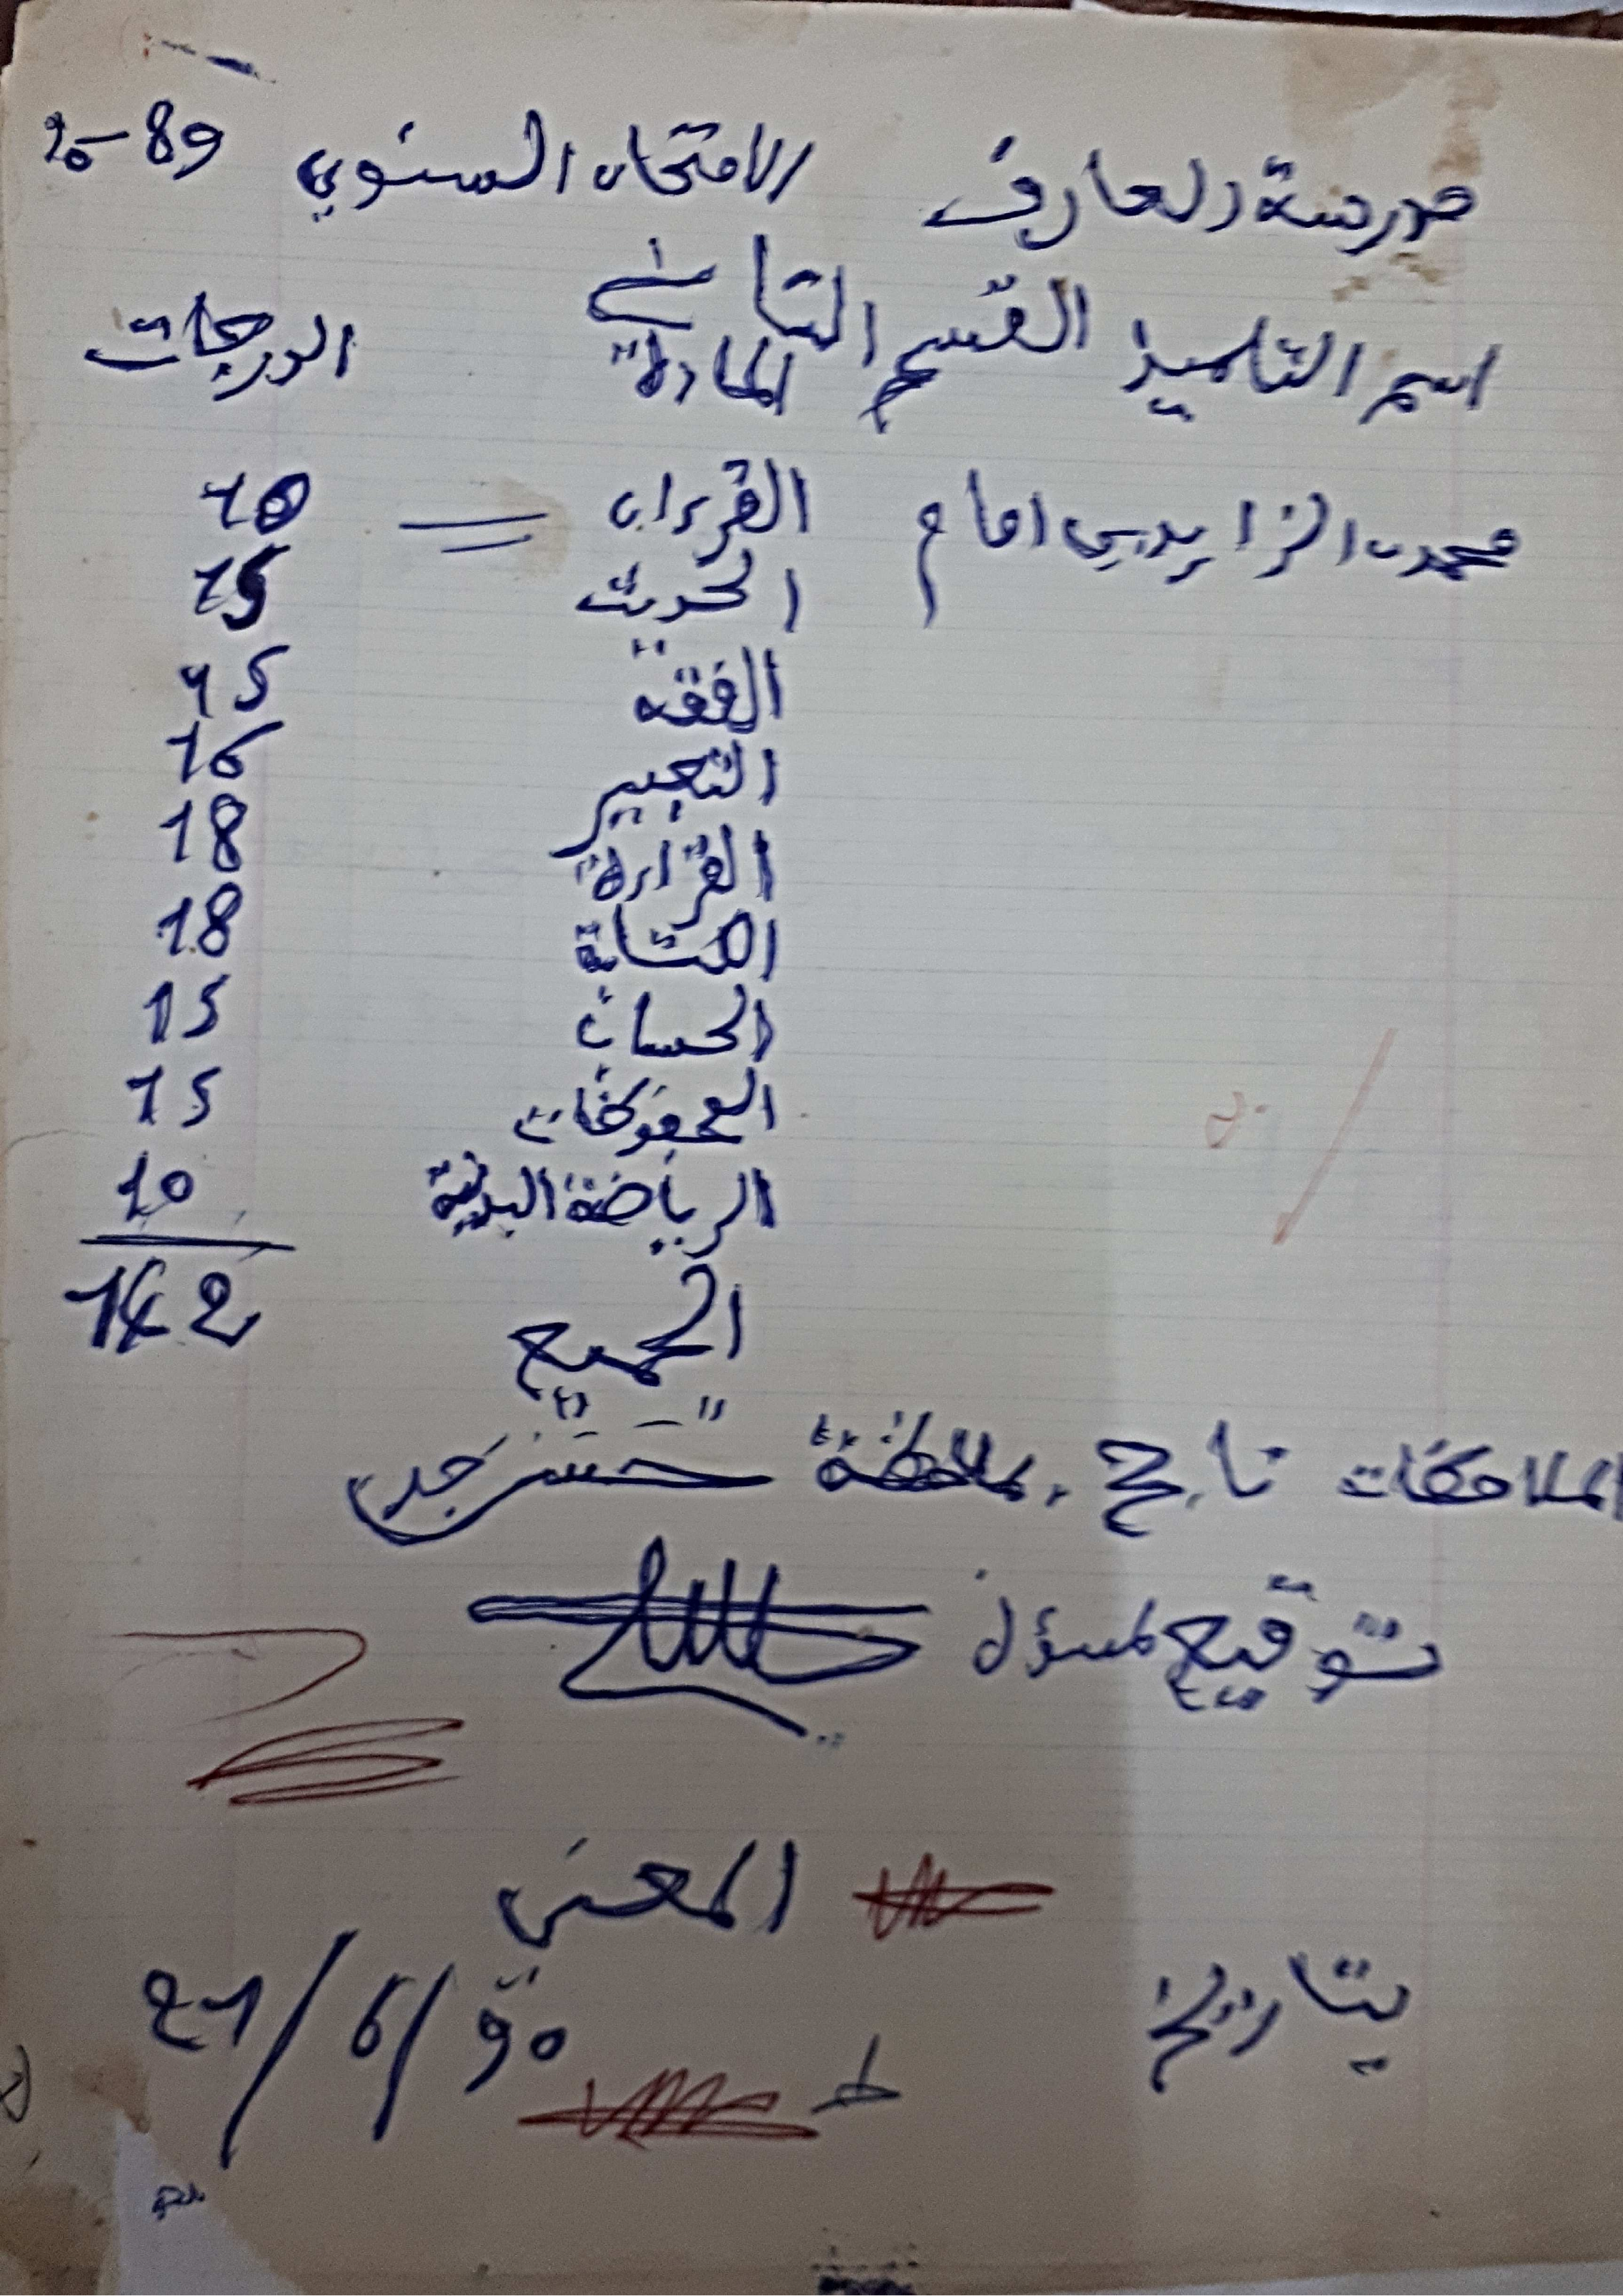 مدرسة المعارف الامتحان السنوي 89-90
اسم التلميذ القسم الثاني المادة الدرجات
محمد الزايدي امام القرءان 10
الحديث 15
الفقه 15
التعبير 16
القراءة 18
الكتابة 18
الحساب 15
المحفوظات 15
الرياضة البدنية 10
الجميع 142
الملاحظات ناجح بملاحظة حسن جدا
توقيع لمسؤل
المعني
بتاريخ 27/6/90